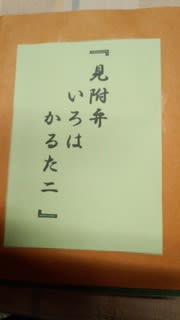 『見附弁
いろは
かるた二』